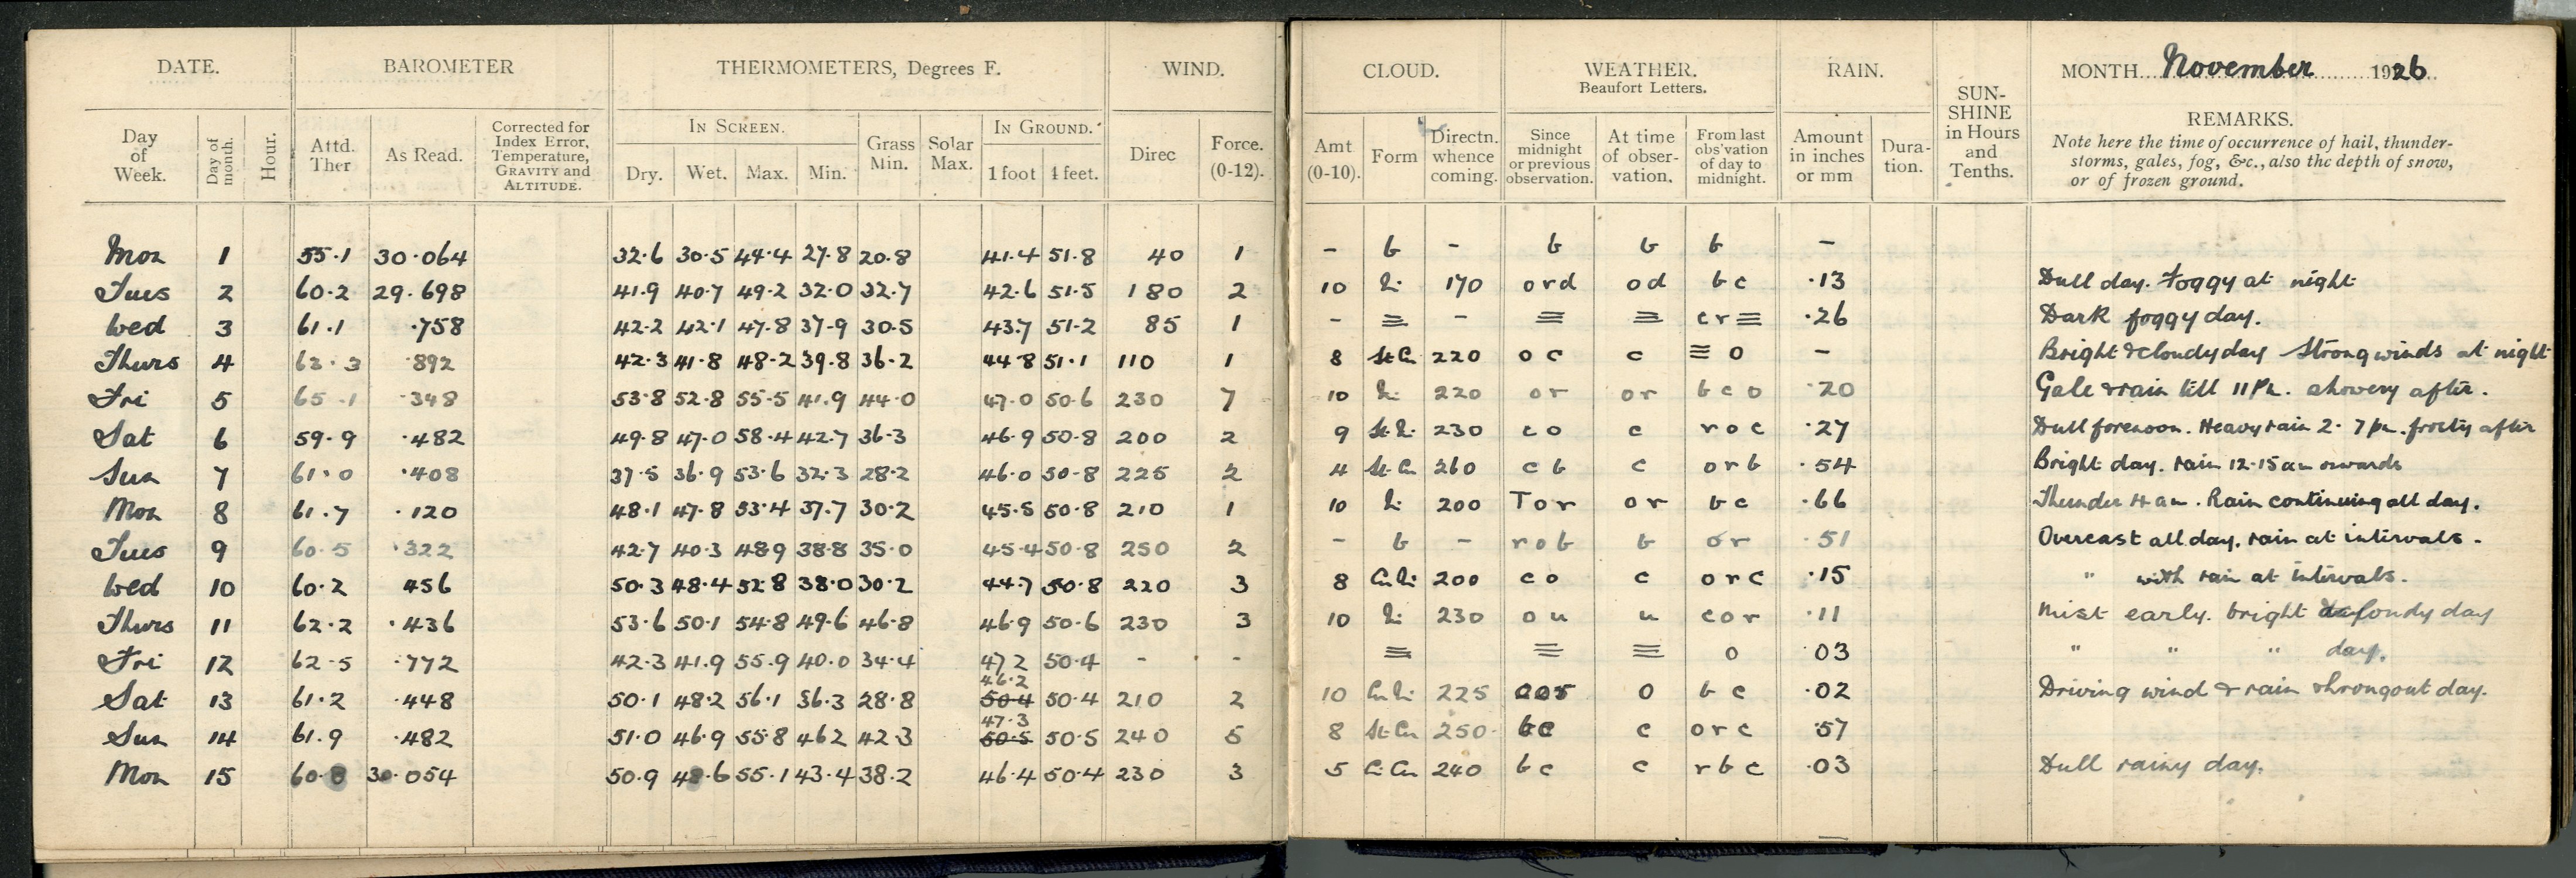 DATE. BAROMETER THERMOMETERS, Degrees F. WIND. CLOUD. WEATHER. Beaufort Letters. RAIN. SUN-SHINE in Hours and Tenths. MONTH November 1926
Day of Week. Day of month. Hour. Attd. Ther As Read. Corrected for Index Error, Temperature, GRAVITY and ALTITUDE. IN SCREEN. Dry. Wet. Max. Min. Grass Min. Solar Max. IN GROUND. 1 foot 4 feet. Direc Force. (0-12). Amt (0-10). Form Directn. whence coming. Since midnight or previous observation. At time of obser-vation. From last obs'vation of day to midnight. Amount in inches or mm Dura-tion. REMARKS.
Note here the time of occurrence of hail, thunder-
storms, gales, fog, &c., also the depth of snow,
or of frozen ground.
Mon 1 55.1 30.064 32.6 30.5 44.4 27.8 20.8 41.4 51.8 40 1 - b - b b b -
Tues 2 60.2 29.698 41.9 40.7 49.2 32.0 32.7 42.6 51.5 180 2 10 170 ord od bc .13 Dull day. Foggy at night
Wed 3 61.1 .758 42.2 42.1 47.8 37.9 30.5 43.7 51.2 85 1 - ≡ - ≡ ≡ cr≡ .26 Dark foggy day.
Thurs 4 62.3 .892 42.3 41.8 48.2 39.8 36.2 44.8 51.1 110 1 8 St Cu 220 oc c ≡ o - Bright & cloudy day Strong winds at night
Fri 5 65.1 .348 53.8 52.8 55.5 41.9 44.0 47.0 50.6 230 7 10 220 or or bco .20 Gale & rain till 11 Pm. showery after.
Sat 6 59.9 .482 49.8 47.0 58.4 42.7 36.3 46.9 50.8 200 2 9 230 co c roc .27 Dull forenoon. Heavy rain 2-7 pm. frosty after
Sun 7 61.0 .408 37.5 36.9 53.6 32.3 28.2 46.0 50.8 225 2 4 St-Cu 260 cb c orb .54 Bright day. rain 12.15 am onwards
Mon 8 61.7 .120 48.1 47.8 53.4 37.7 30.2 45.5 50.8 210 1 10 200 Tor or bc .66 Thunder 4 am. Rain continuing all day.
Tues 9 60.5 .322 42.7 40.3 48.9 38.8 35.0 45.4 50.8 250 2 - b - rob b or .51 Overcast all day. rain at intervals.
Wed 10 60.2 456 50.3 48.4 52.8 38.0 30.2 44.7 50.8 220 3 8 200 co c orc .15 " with rain at intervals.
Thurs 11 62.2 .436 53.6 50.1 54.8 49.6 46.8 46.9 50.6 230 3 10 230 ou u cor .11 Mist early. bright day
Fri 12 62.5 .772 42.3 41.9 55.9 40.0 34.4 47.2 50.4 - - ≡ ≡ ≡ o 03 " " " day.
Sat 13 61.2 .448 50.1 48.2 56.1 36.3 28.8 46.2 50.4 50.4 210 2 10 225 o bc .02 Driving wind & rain throngout day.
Sun 14 61.9 .482 51.0 46.9 55.8 46.2 42.3 47.3 50.5 50.5 240 5 8 St-Cu 250 bc c orc .57
Mon 15 60.8 30.054 50.9 48.6 55.1 43.4 38.2 46.4 50.4 230 3 5 240 bc c rbc .03 Dull rainy day.